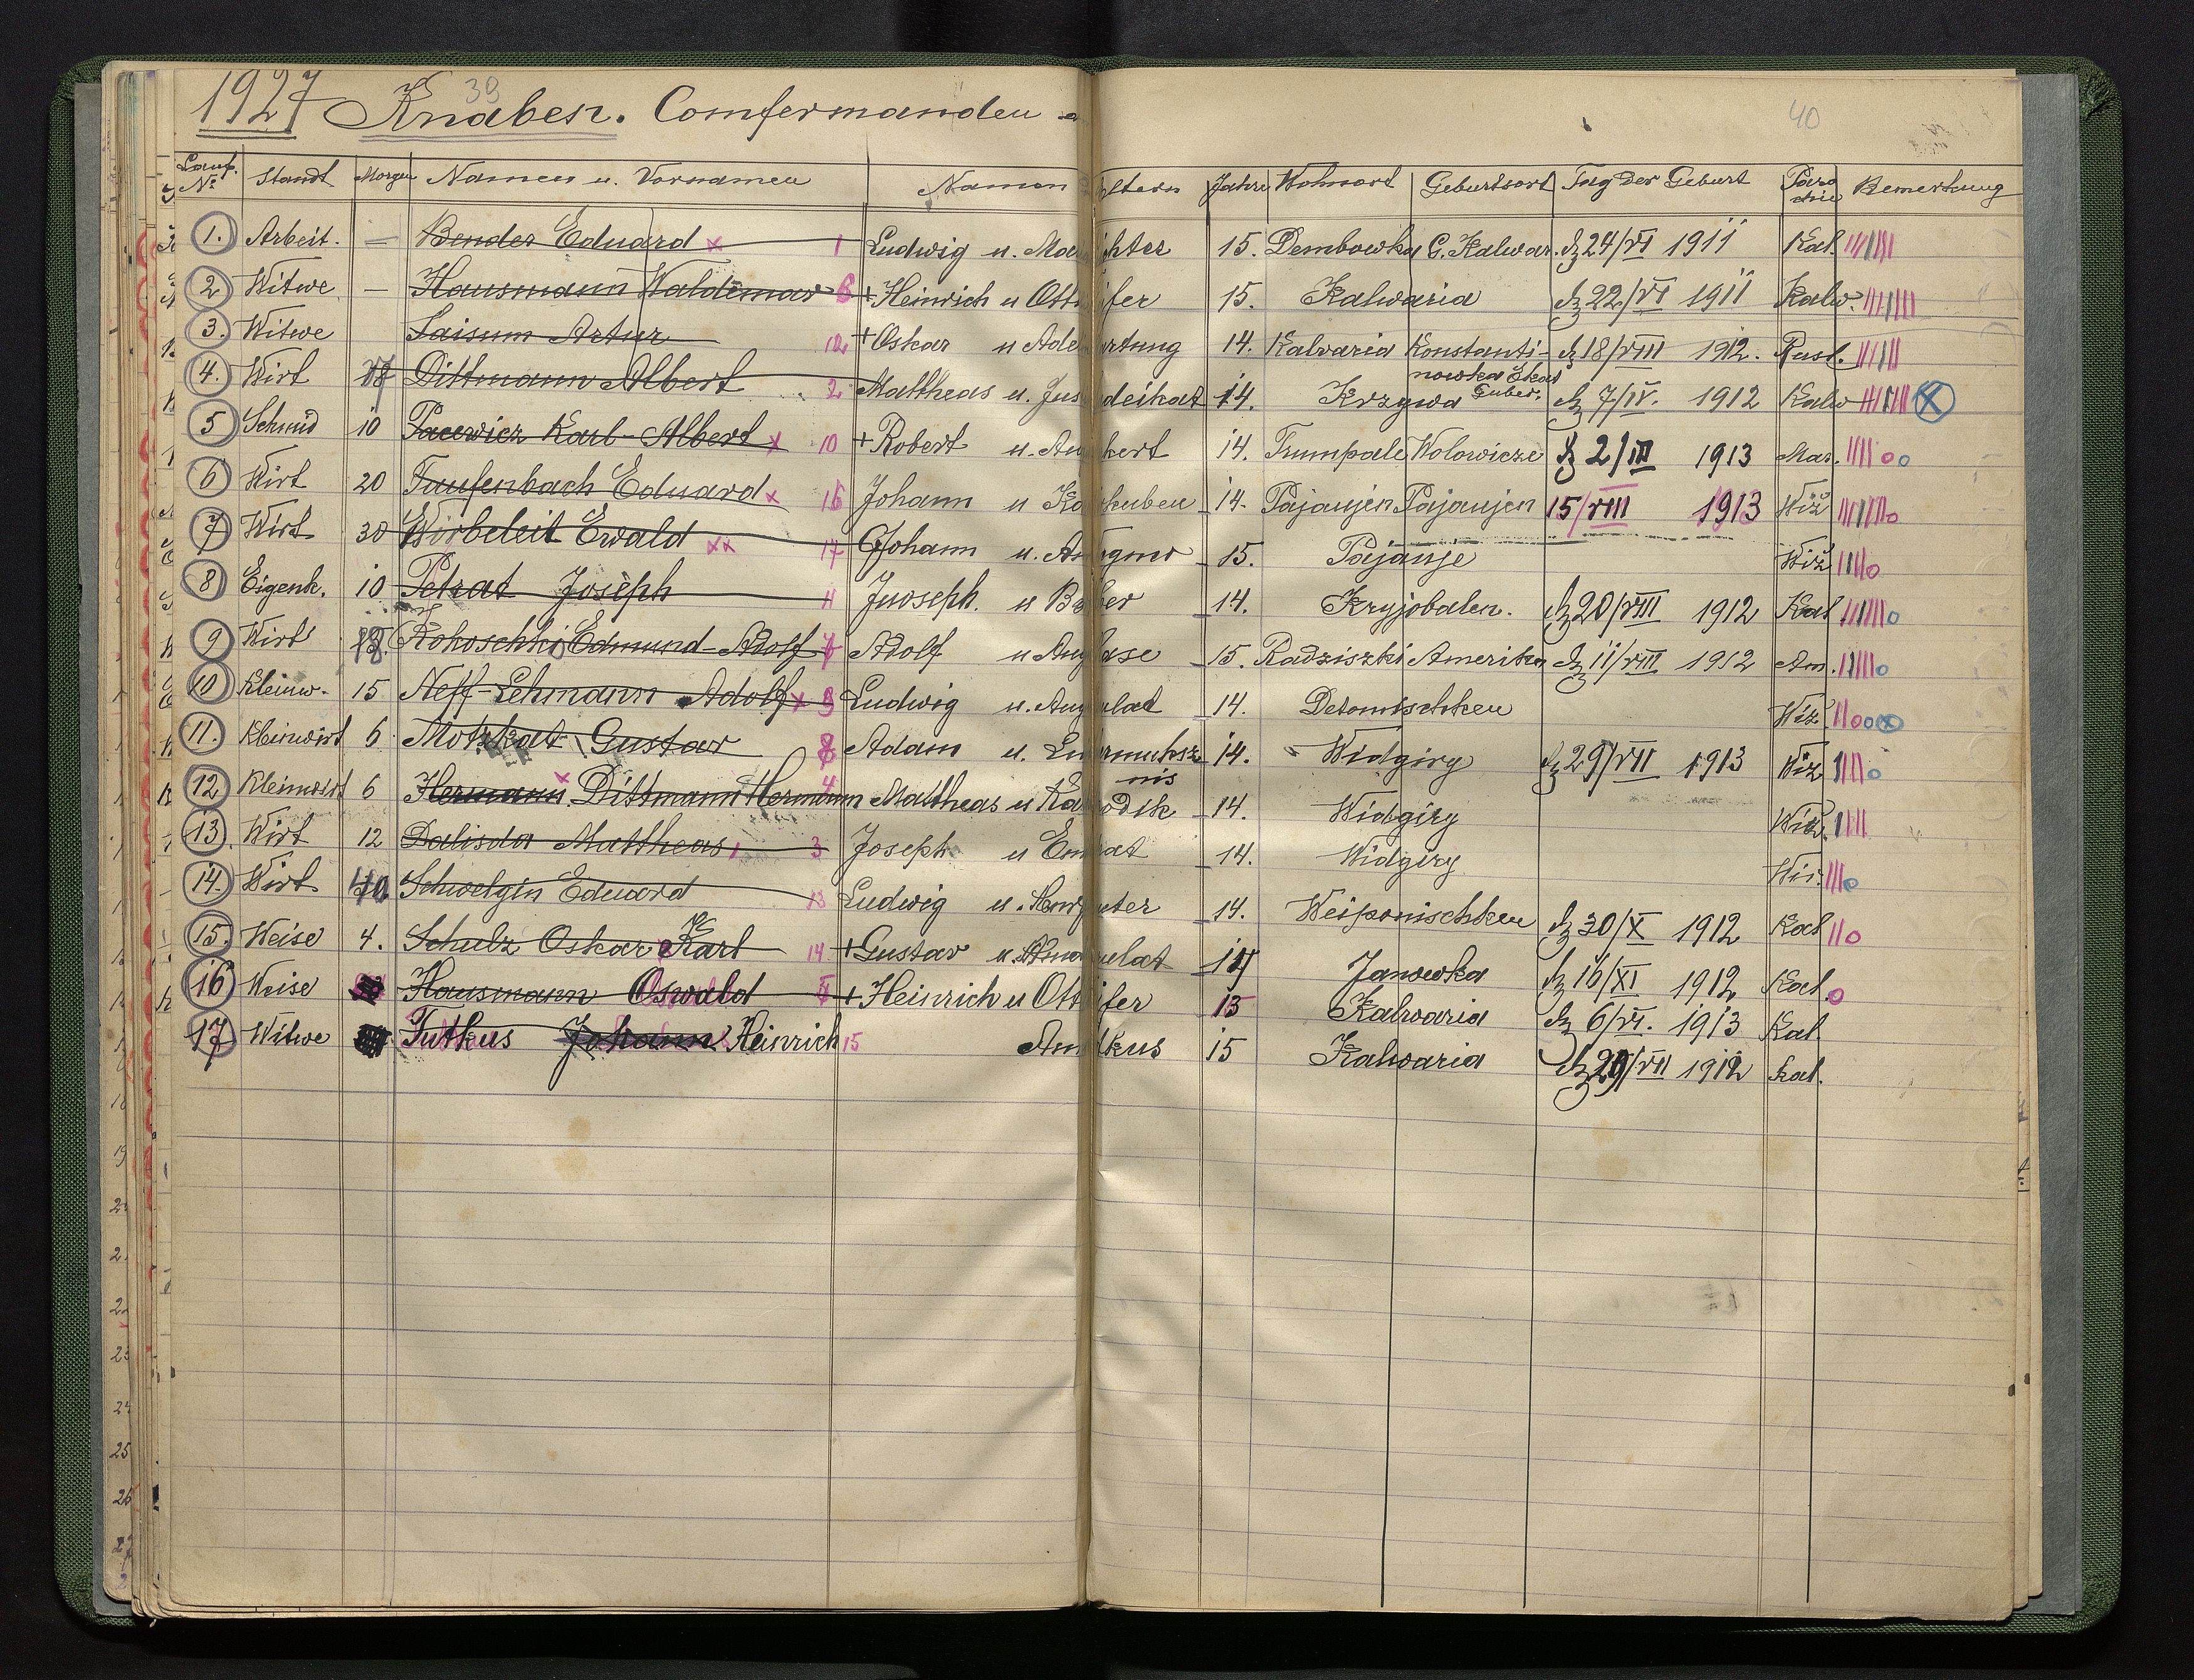 39
1927 Knaben. Comfermanden
40
Lauf. № Standt Morgen Namen u. Vornamen Namen ltern Jahre Wohnort Geburtsort Tag der Geburt Paro chie Bemerkung
1. Arbeit. — Bender Eduard x 1 Ludwig u. Ma chter 15. Dembowka G. Kalwar. 24/VI 1911 Kal.
2 Witwe — Hausmann Waldemar 6 + Heinrich u Ott fer 15. Kalwaria 22/VI 1911 Kalw.
3. Witwe Laisum Artur 12 + Oskar u Ade rtung 14. Kalvaria Konstanti- nowka Ekat Guber. 18/VIII 1912. Russl.
4. Wirt 17 Dittmann Albert 2 Mattheas u. Jus deikat 14. Krzywa 7/IV. 1912 Kalw
5 Schmid 10 Pacewicz Karl-Albert x 10 + Robert u. Au kert 14. Trumpale Wolowicze 2/III 1913 Mar.
6 Wirt 20 Taufenbach Eduard x 16 Johann u Ka kuben 14. Pajaujen Pajaujen 15/VIII 1913 Wiż
7 Wirt 30 Wirbeleit Ewald xx 17 Johann u. An gnw 15. Pajauje Wiż
8 Eigenk. 10 Petrat Joseph 11 Juoseph. u Ba ber 14. Kryjobalen. 20/VIII 1912 Kal
9 Wirt 18. Rohoschki Edmund-Adolf 7 Adolf u Aug ase 15. Radziszki Amerika 11/VIII 1912 Am.
10 Kleinw. 15 Neff-Lehmann Adolf x 9 Ludwig u. Aug lat 14. Detomischken Wiż
11. Kleinwirt 6 Motzkat Gustav 8 Adam u. Lu rmuksz nis 14. Widgiry 29/VII 1913 Wiż
12 Kleinwirt 6 Hermann x Dittmann Hermann 4 Mattheas u Ka odsk 14. Widgiry Wiż.
13. Wirt 12 Dalisda Mattheas 3 Joseph u Em rat 14. Widgiry Wiż.
14. Wirt 40 Schwelgin Eduard 13 Ludwig u. Henr uter 14. Weiponischken 30/X 1912 Kal
15. Weise 4. Schulz Oskar Karl 14 + Gustav u. Ama elat 14 Janowka 16/XI 1912 Kal.
16 Weise Hausmann Oswald 5 + Heinrich u Ott fer 13 Kalwaria 6/VI. 1913 Kal.
17 Witwe Tutkus Johann Heinrich 15 Am kus 15 Kalwaria 29/VII 1912 Kal.